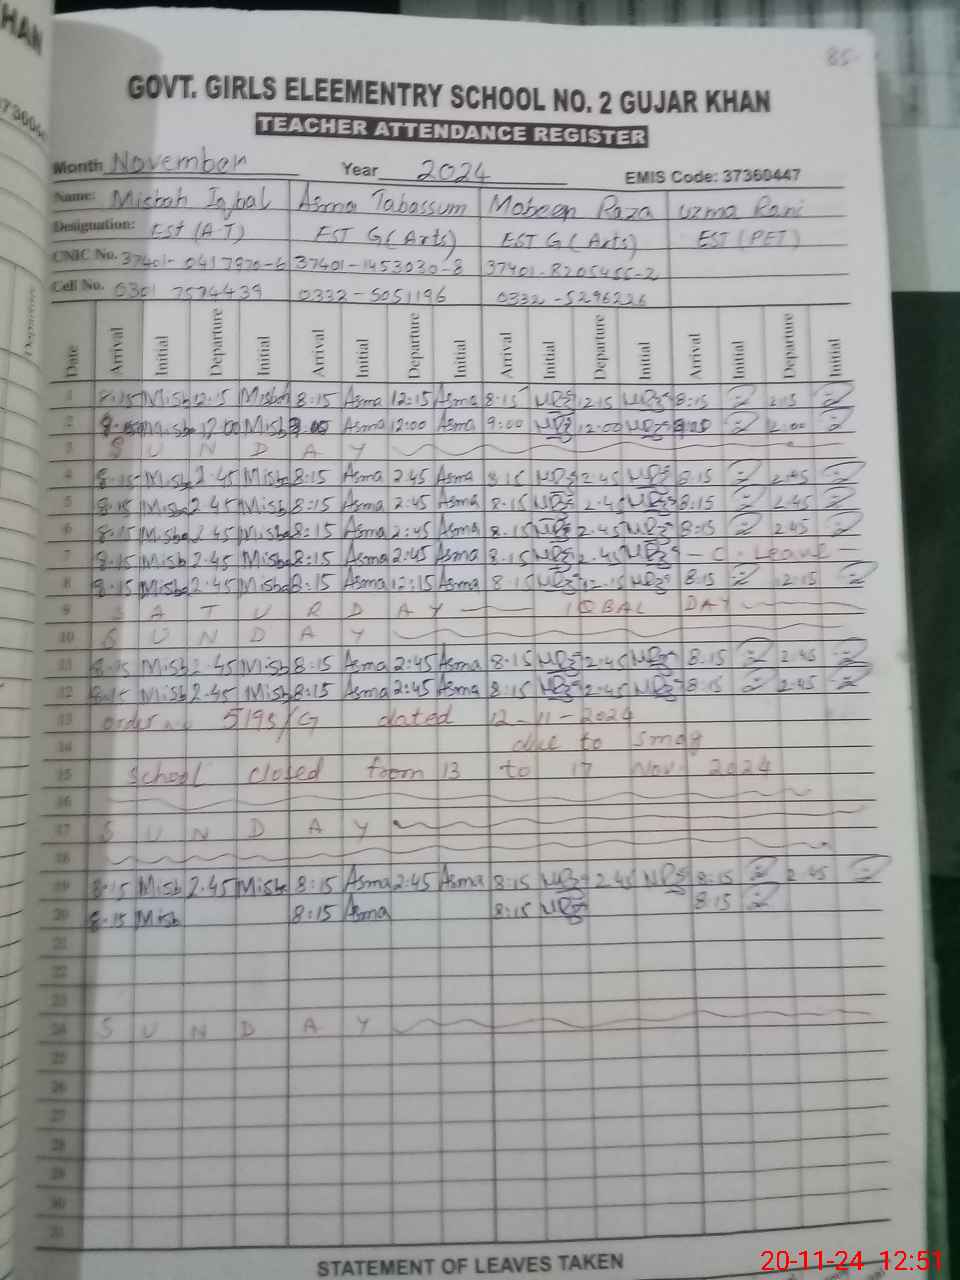 HAN
85
GOVT. GIRLS ELEEMENTRY SCHOOL NO. 2 GUJAR KHAN
TEACHER ATTENDANCE REGISTER
Month November Year 2024 EMIS Code: 37360447
Name: Misbah Iqbal Asma Tabassum Mobeen Raza Uzma Rani
Designation: EST (A.T) EST G (Arts) EST G (Arts) EST (PET)
CNIC No. 37401-1453030-8 37401-8205455-2
Cell No. 0301 7574439 0332-5051196 0332-5296226
Date Arrival Initial Departure Initial Arrival Initial Departure Initial Arrival Initial Departure Initial Arrival Initial Departure Initial
1 8:15 Misb 2.15 Misbah 8:15 Asma 12:15 Asma 8:15 12.15 8:15
2 Misba 12:00 Misb Asma 12:00 Asma 9:00 12:00
3 S U N D A Y
4 8:15 Misba 2.45 Misba 8:15 Asma 2:45 Asma 8:15 2.45 8:15 2.45
5 8:15 Misba 2.45 Misba 8:15 Asma 2:45 Asma 8:15 2.45 8:15 2.45
6 8:15 Misba 2.45 Misba 8:15 Asma 2:45 Asma 8:15 2.45 8:15 2.45
7 8:15 Misba 2.45 Misba 8:15 Asma 2:45 Asma 8:15 2.45 - C. Leave -
8 8:15 Misba 2.45 Misba 8:15 Asma 12:15 Asma 8:15 12.15 8:15 12:15
9 S A T U R D A Y IQBAL DAY
10 S U N D A Y
11 8:15 Misb 2.45 Misb 8:15 Asma 2:45 Asma 8:15 2.45 8:15 2.45
12 8:15 Misb 2.45 Misb 8:15 Asma 2:45 Asma 8:15 2.45 8:15 2.45
13 order 5193/G dated 12-11-2024
14 due to smog
15 School closed from 13 to 17 Nov 2024
16
17 S U N D A Y
18
19 8:15 Misb 2.45 Misb 8:15 Asma 2:45 Asma 8:15 2.45 8:15 2.45
20 8:15 Misb 8:15 Asma 8:15 8:15
21
22
23
24 S U N D A Y
25
26
27
28
29
30
31
STATEMENT OF LEAVES TAKEN
20-11-24 12:51